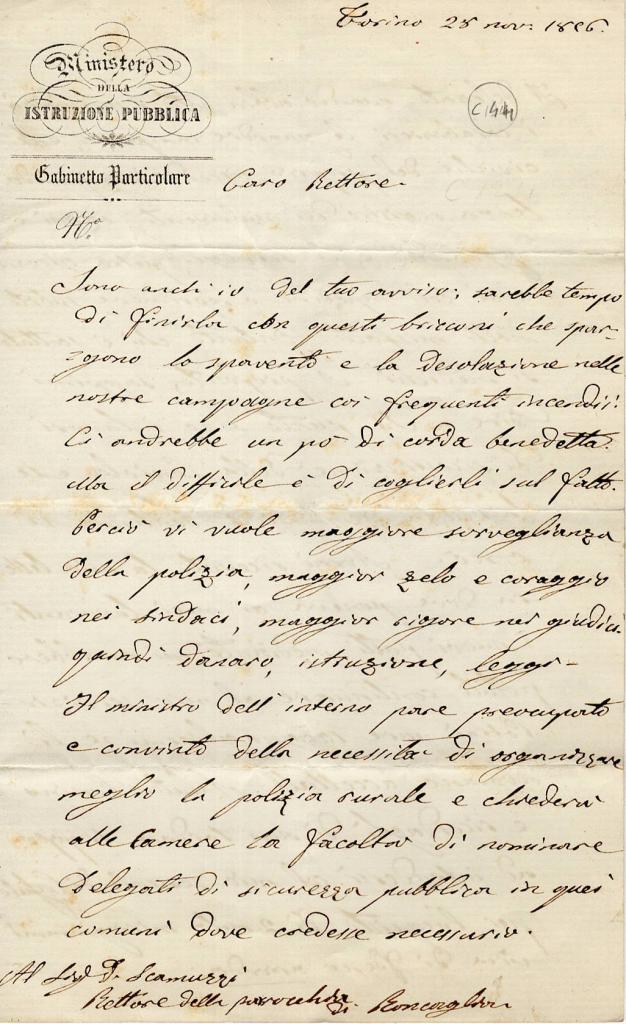 Torino 28 nov: 1856.
Ministero
DELLA
ISTRUZIONE PUBBLICA
C 144
Gabinetto Particolare
Caro Rettore.
N.º
Sono anch'io del tuo avviso; sarebbe tempo
di finirla con questi bricconi che spar-
gono lo spavento e la desolazione nelle
nostre campagne coi frequenti incendii!
Ci andrebbe un po' di corda benedetta.
Ma il difficile è di coglierli sul fatto.
Perciò vi vuole maggiore sorveglianza
della polizia, maggior zelo e coraggio
nei sindaci, maggior rigore nei giudici.
quindi danaro, istruzione, leggi-
Il ministro dell'interno pare preoccupato
e convinto della necessità di organizzare
meglio la polizia rurale e chiederà
alle Camere la facoltà di nominare
Delegati di sicurezza pubblica in quei
comuni dove credesse necessario.
Al Sig. D. Scamuzzi
Rettore della parocchia di Roncaglia